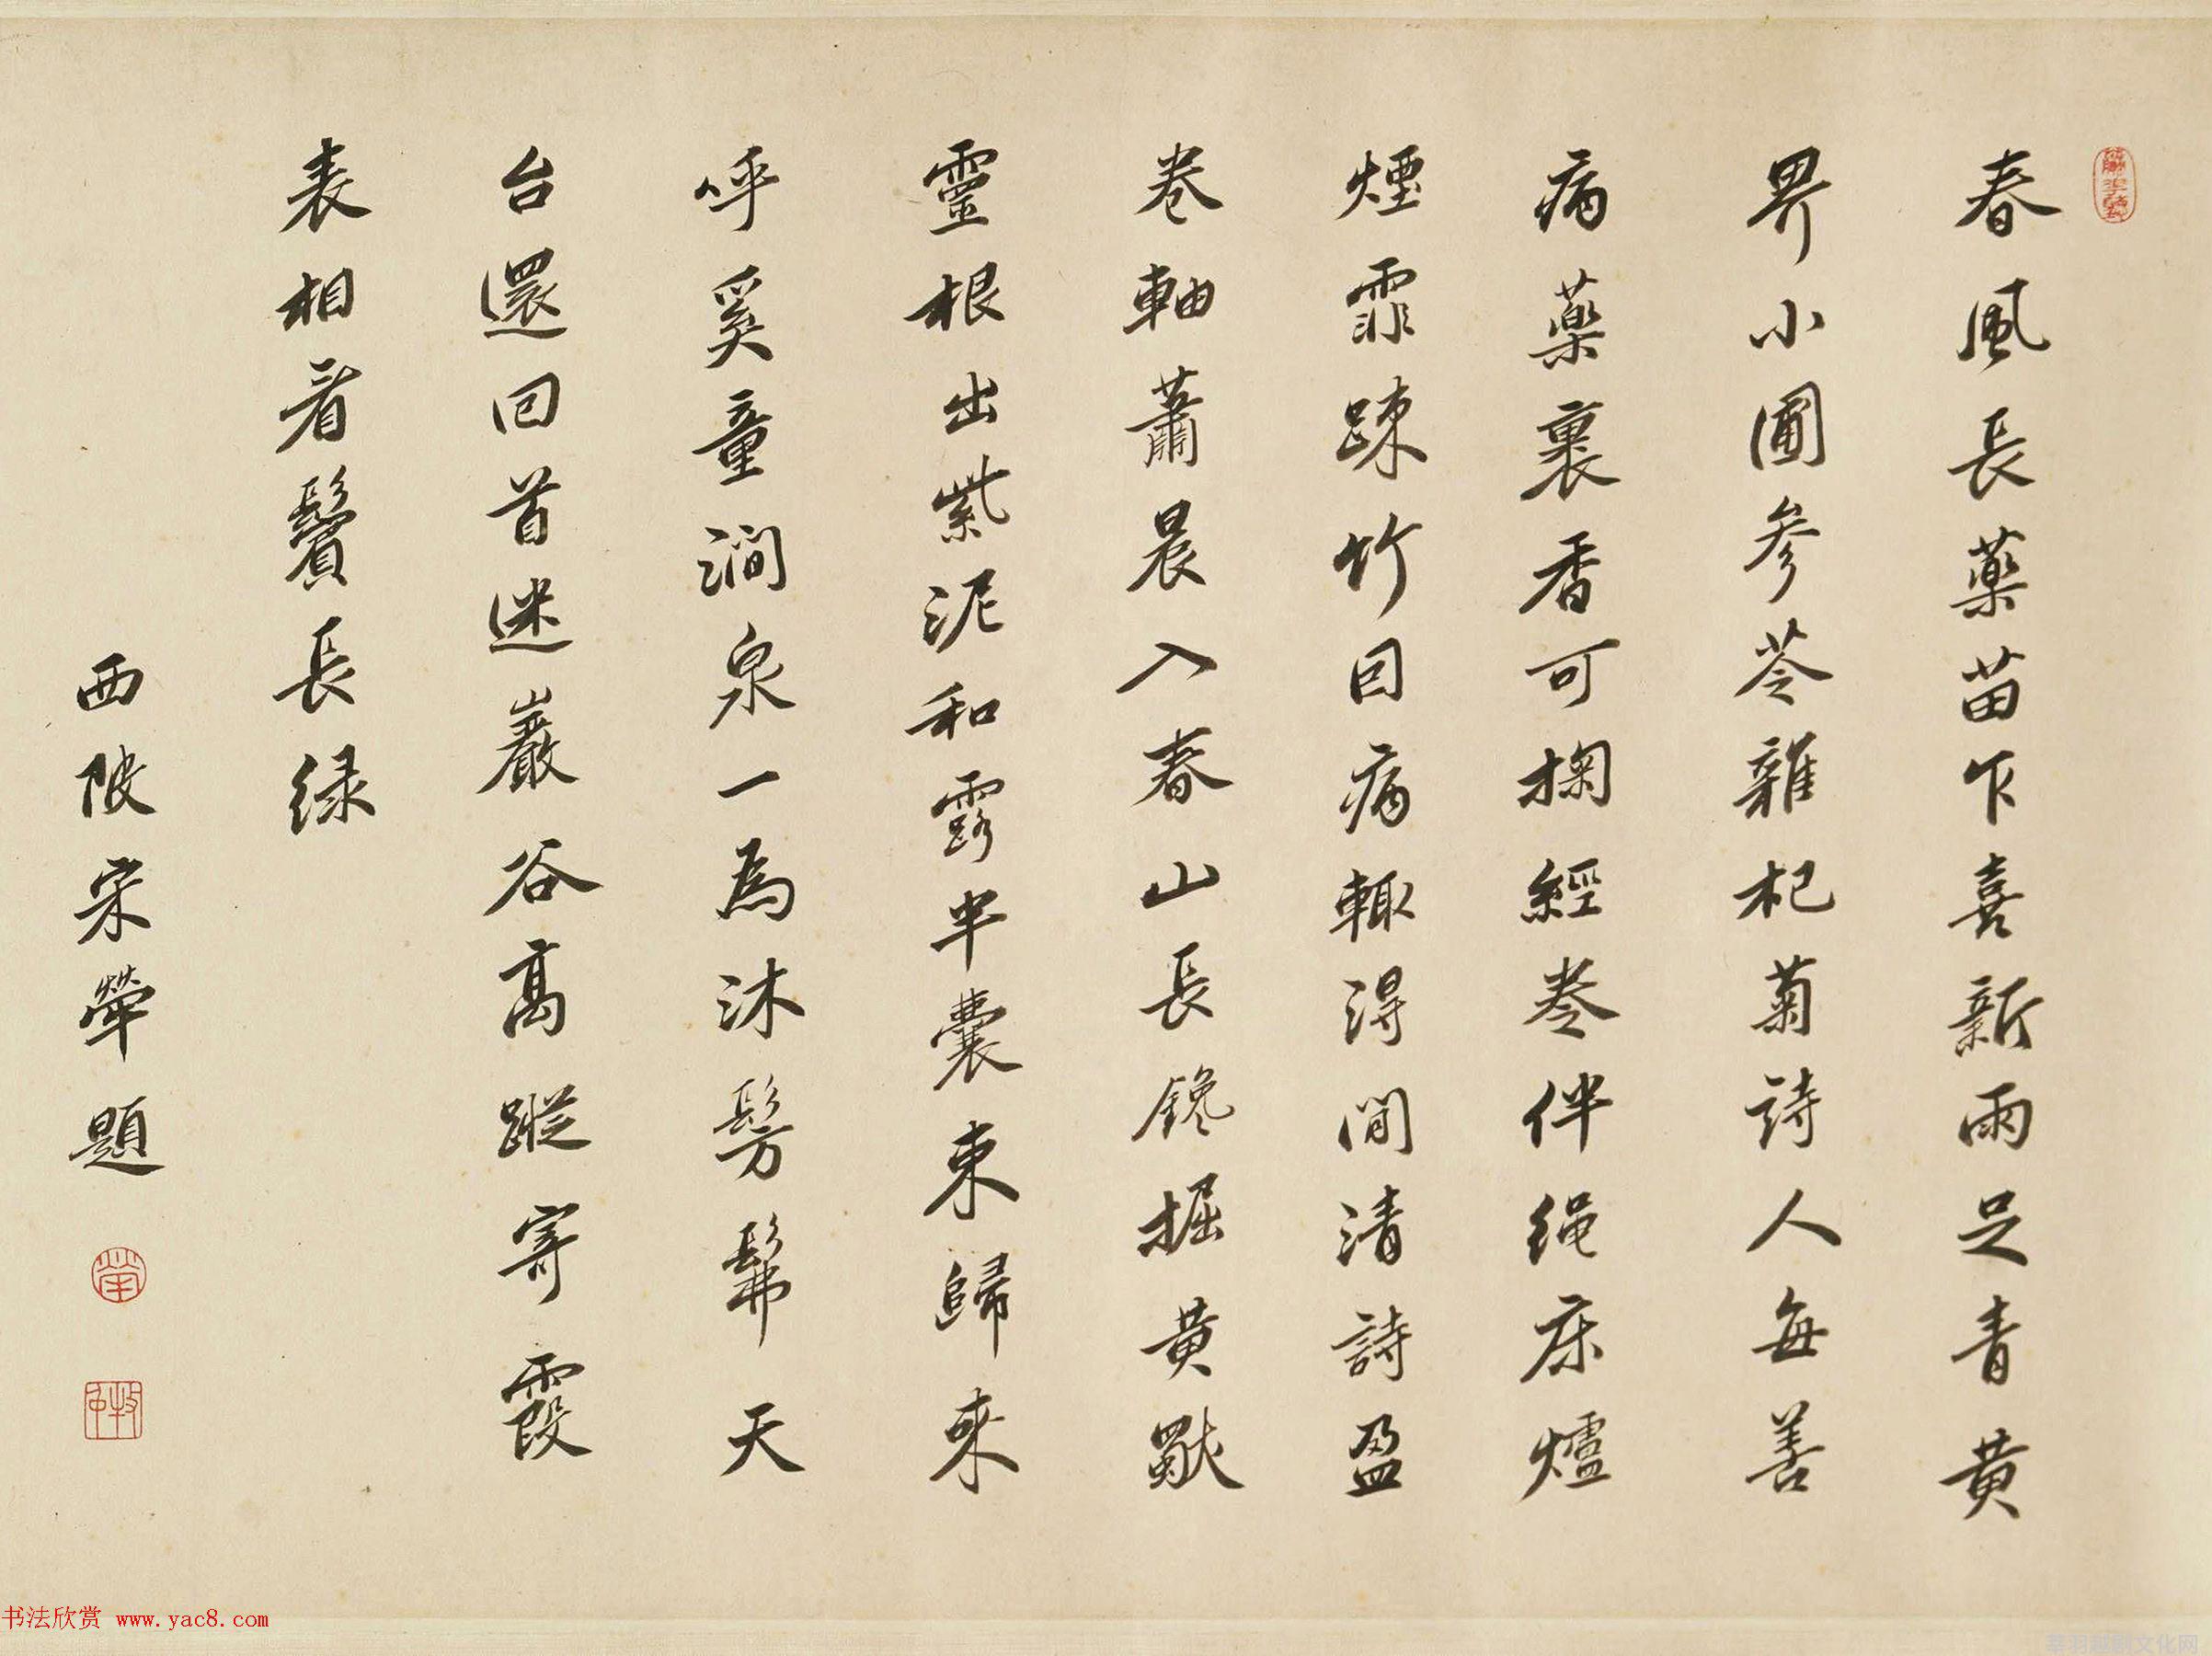 春風長藥苗乍喜新雨足青黄
界小圃參苓雜杞菊詩人每善
病藥裏香可掬經卷伴绳床爐
煙霏踈竹因病輙淂閒清詩盈
卷軸蕭晨入春山長鑱掘黄獨
靈根出紫泥和露半囊束歸來
呼奚童澗泉一為沐髣髴天
台還回首迷巖谷高蹤寄霞
表相看鬢長緑
西陂宋犖題
犖
书法欣赏 www.yac8.com